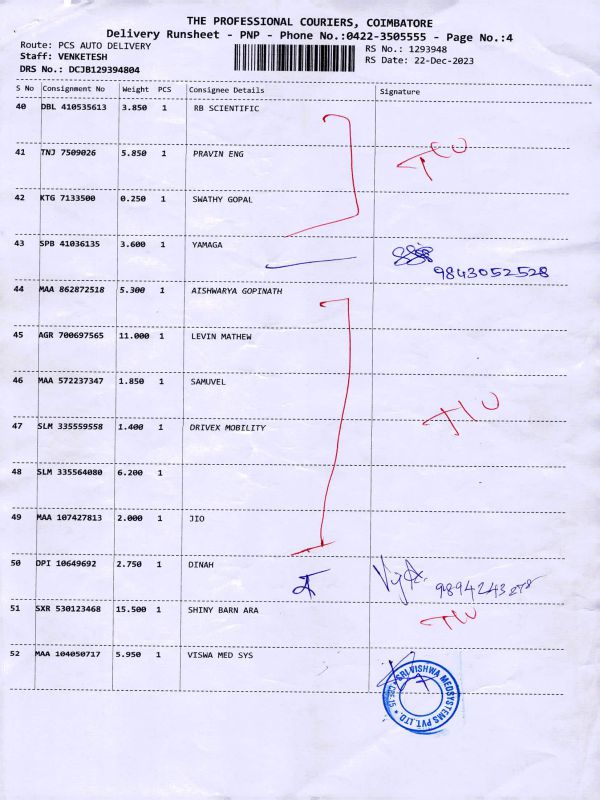 THE PROFESSIONAL COURIERS, COIMBATORE
Delivery Runsheet - PNP - Phone No.:0422-3505555 - Page No.:4
Route: PCS AUTO DELIVERY
RS No.: 1293948
Staff: VENKETESH
RS Date: 22-Dec-2023
DRS No.: DCJB129394804
S No Consignment No Weight PCS Consignee Details Signature
40 DBL 410535613 3.850 1 RB SCIENTIFIC
41 TNJ 7509026 5.850 1 PRAVIN ENG
42 KTG 7133500 0.250 1 SWATHY GOPAL
43 SPB 41036135 3.600 1 YAMAGA
9843052528
44 MAA 862872518 5.300 1 AISHWARYA GOPINATH
45 AGR 700697565 11.000 1 LEVIN MATHEW
46 MAA 572237347 1.850 1 SAMUVEL
47 SLM 335559558 1.400 1 DRIVEX MOBILITY
48 SLM 335564080 6.200 1
49 MAA 107427813 2.000 1 JIO
50 DPI 10649692 2.750 1 DINAH
51 SXR 530123468 15.500 1 SHINY BARN ARA
52 MAA 104050717 5.950 1 VISWA MED SYS
SRI VISHWA MEDSYSTEMS PVT. LTD.